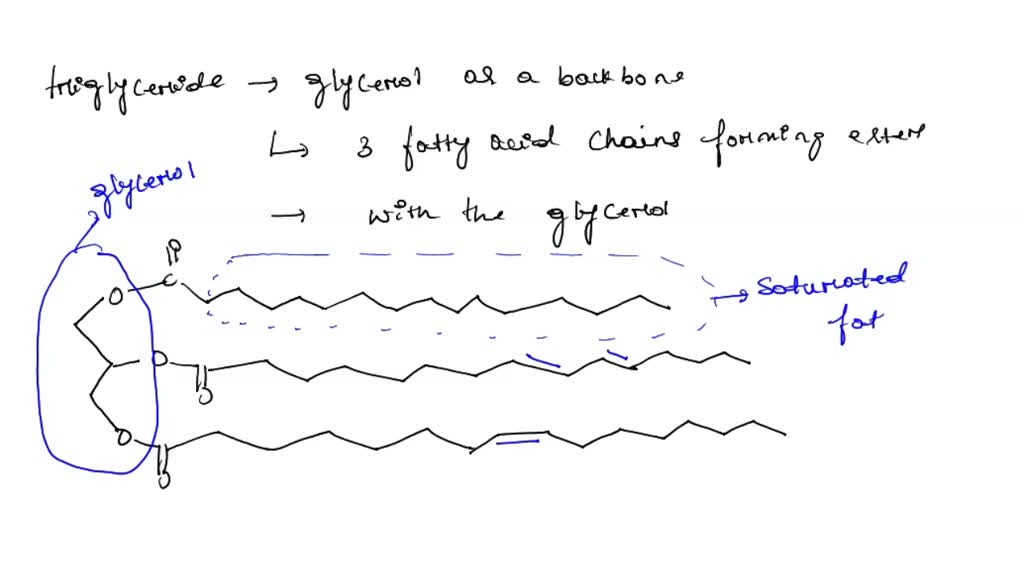 triglyceride → glycerol as a backbone
↳ 3 fatty acid chains forming esters
→ with the glycerol
glycerol
O
C
O
→ saturated
fat
O
O
O
O